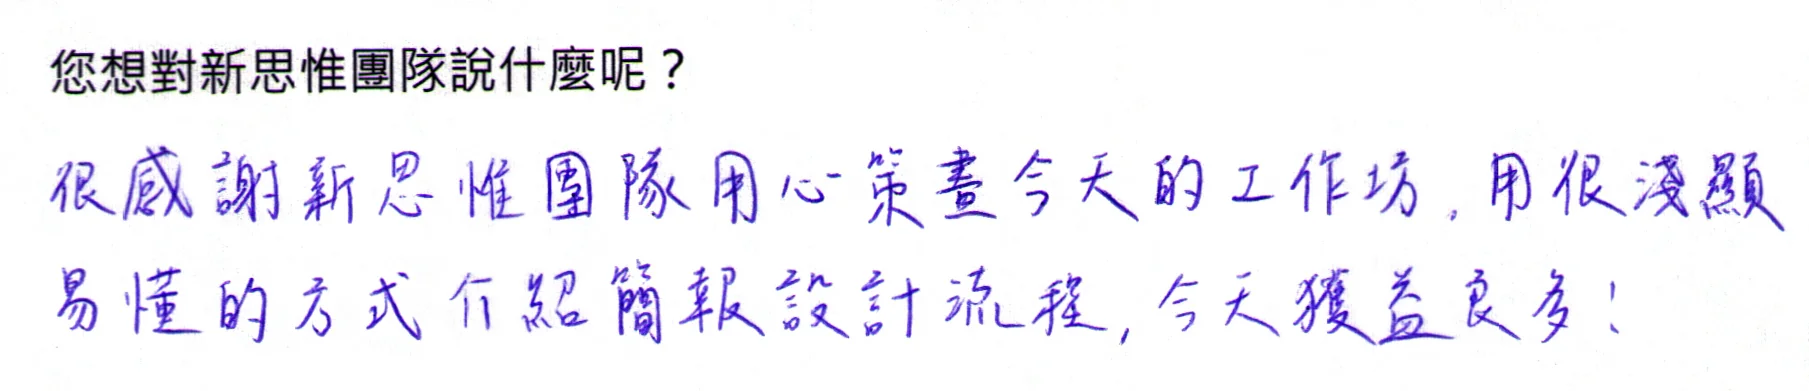 您想對新思惟團隊說什麼呢？
很感謝新思惟團隊用心策畫今天的工作坊，用很淺顯
易懂的方式介紹簡報設計流程，今天獲益良多！